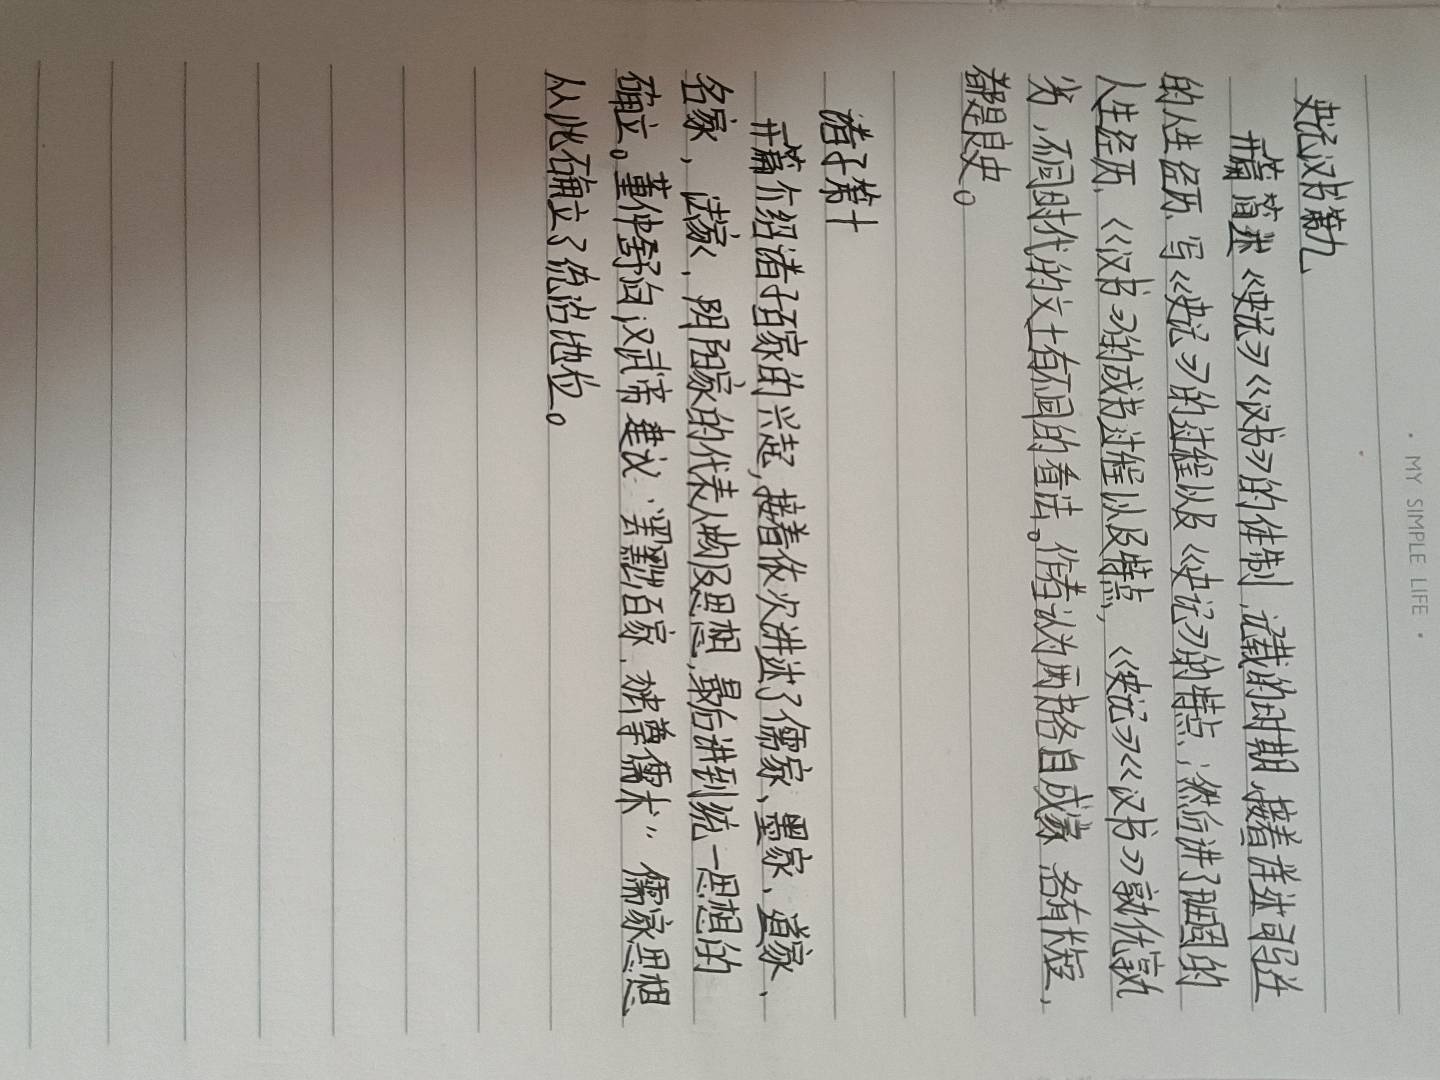 · MY SIMPLE LIFE ·
史记汉书第九
开篇简述《史记》《汉书》的体制,记载的时期,接着详述司马迁
的人生经历,写《史记》的过程以及《史记》的特点,然后讲了班固的
人生经历,《汉书》的成书过程以及特点,《史记》《汉书》孰优孰
劣,不同时代的文士有不同的看法。作者认为两书各自成家,各有长短,
都是良史。
诸子第十
开篇介绍诸子百家的兴起,接着依次讲述了儒家、墨家、道家、
名家,法家,阴阳家的代表人物及思想,最后讲到统一思想的
确立。董仲舒向汉武帝建议“罢黜百家,独尊儒术”儒家思想
从此确立了统治地位。